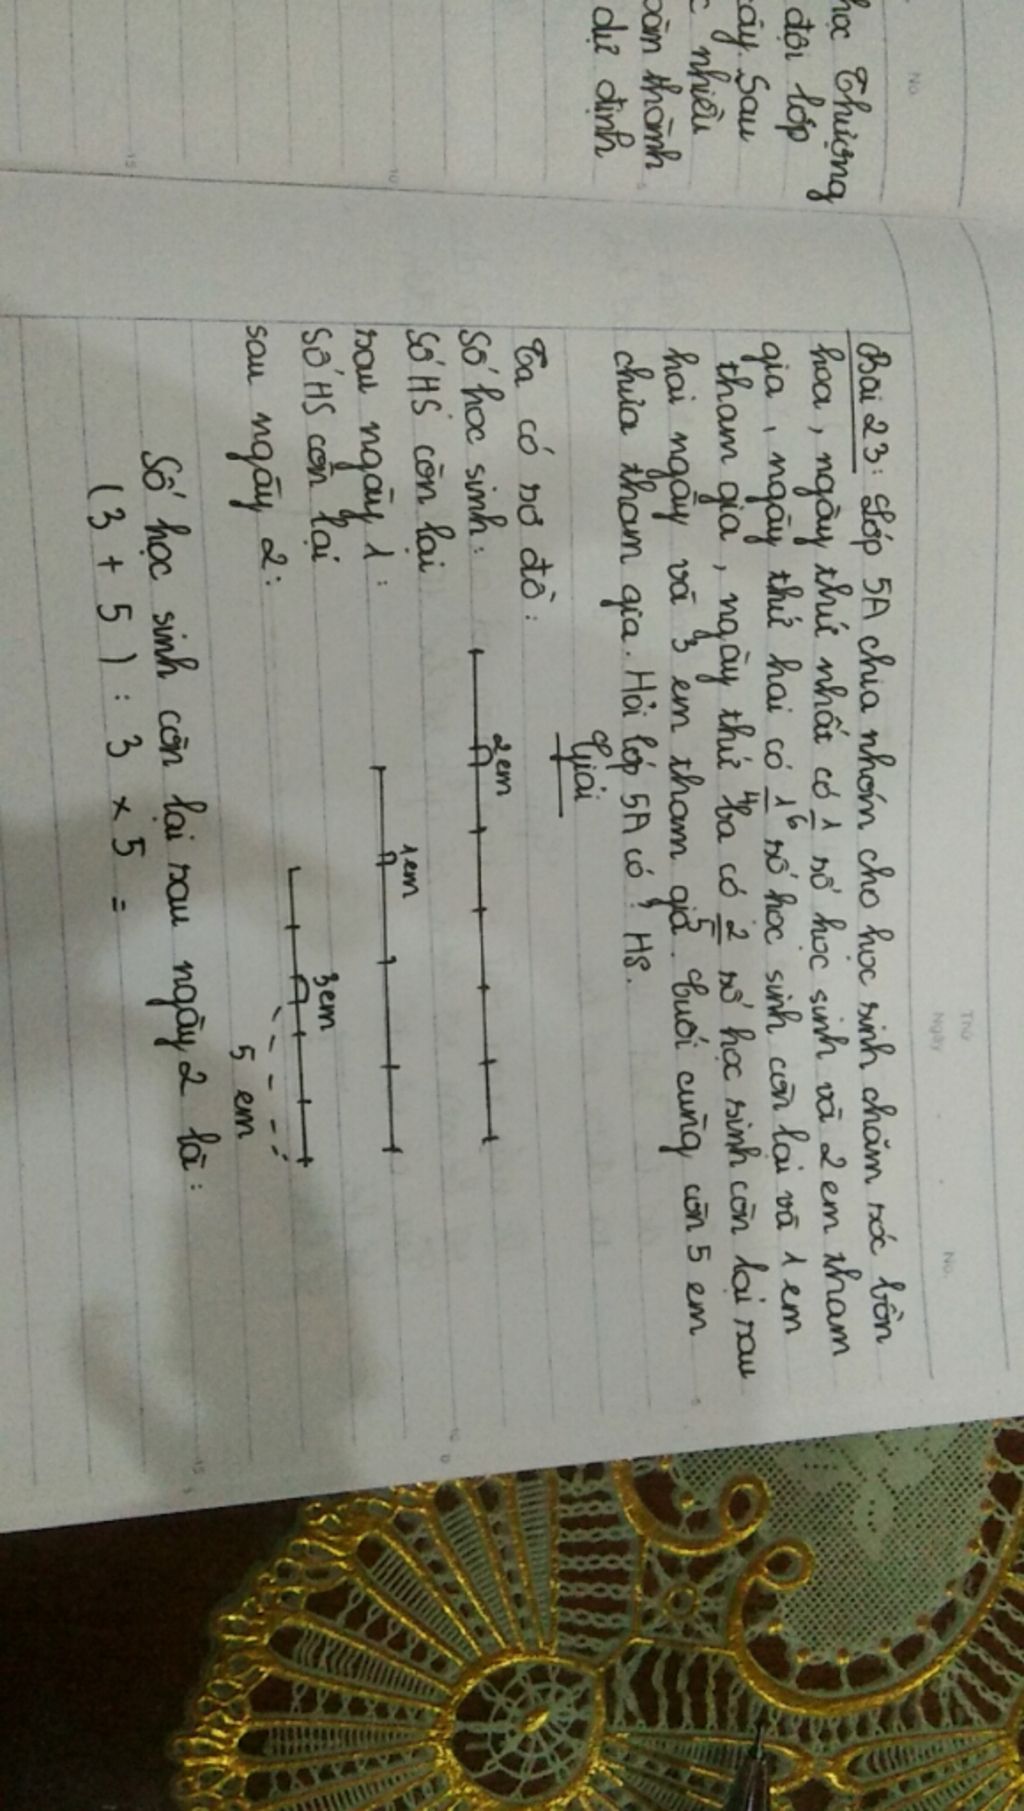 học Thượng
đội lớp
cây. Sau
nhiều
oàn thành
dự định
Bài 23: Lớp 5A chia nhóm cho học sinh chăm sóc bồn
hoa, ngày thứ nhất có 1/6 số học sinh và 2 em tham
gia, ngày thứ hai có 1/4 số học sinh còn lại và 1 em
tham gia, ngày thứ ba có 2/5 số học sinh còn lại sau
hai ngày và 3 em tham gia. Cuối cùng còn 5 em
chưa tham gia. Hỏi lớp 5A có ? HS.
Giải
Ta có sơ đồ:
2 em
Số học sinh:
Số HS còn lại
1 em
sau ngày 1:
Số HS còn lại
3 em
sau ngày 2:
5 em
Số học sinh còn lại sau ngày 2 là:
(3 + 5) : 3 × 5 =